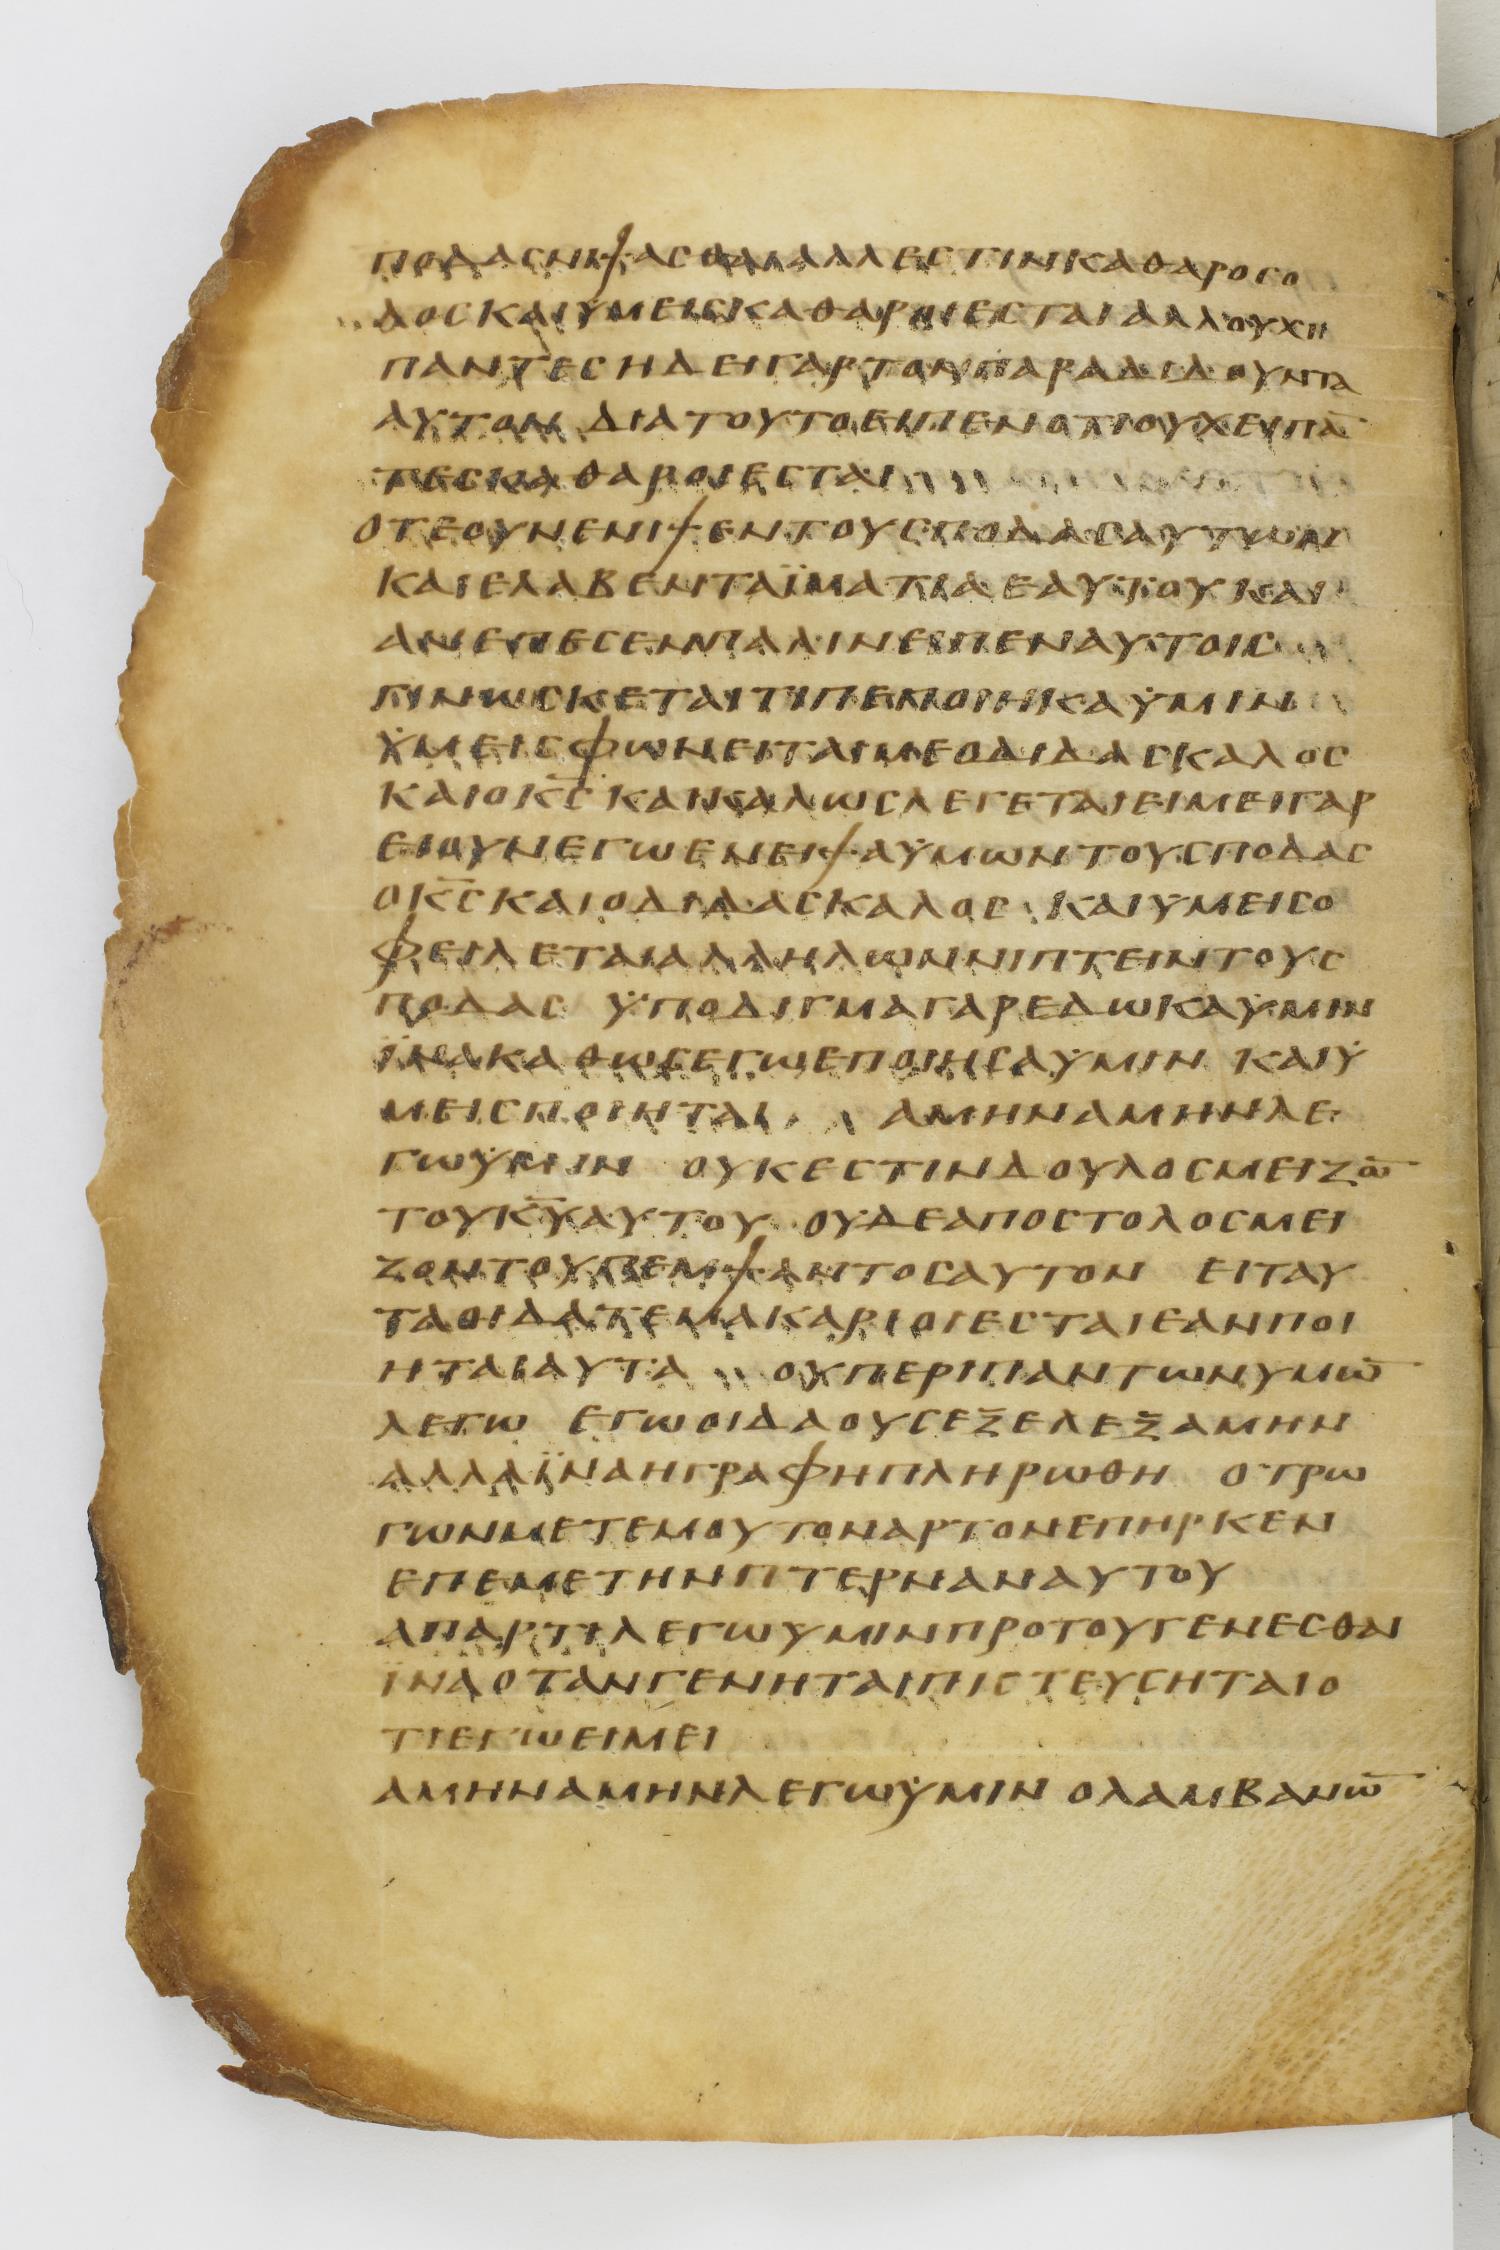 ποδασνιψασθαιαλλεστινκαθαροσο
λοσκαιϋμεισκαθαροιεσταιαλλουχει
παντεσηδειγαρτονπαραδιδουντα
αυτονδιατουτοειπενοτιουχειπα̅
τεσκαθαροιεσται
οτεουνενιψεντουσποδασαυτων
καιελαβενταϊματιαεαυτουκαι
ανεπεσενπαλινειπεναυτοισ
γινωσκεταιτιπεποιηκαϋμιν
ϋμεισφωνειταιμεοδιδασκαλοσ
καιοκ̅σ̅ καικαλωσλεγεταιειμειγαρ
ειουνεγωενειψαϋμωντουσποδασ
οκ̅σ̅καιοδιδασκαλοσ καιυμεισο
φειλεταιαλληλωννιπτειντουσ
ποδασ ϋποδιγμαγαρεδωκαϋμιν
ϊνακαθωσεγωεποιησαϋμιν καιϋ
μεισποιηται αμηναμηνλε
γωϋμιν ουκεστινδουλοσμειζω̅
τουκ̅υ̅αυτου ουδεαποστολοσμει
ζοντουπεμψαντοσαυτον ειταυ
ταοιδατεμακαριοιεσταιεανποι
ηταιαυτα ουπεριπαντωνυμω̅
λεγω εγωοιδαουσεξελεξαμην
αλλαϊναηγραφηπληρωθη οτρω
γωνμετεμουτοναρτονεπηρκεν
επεμετηνπτερναναυτου
απαρτιλεγωυμινπροτουγενεσθαι
ϊναοτανγενηταιπιστευσηταιο
τιεγωειμει
αμηναμηνλεγωϋμιν ολαμβανω̅